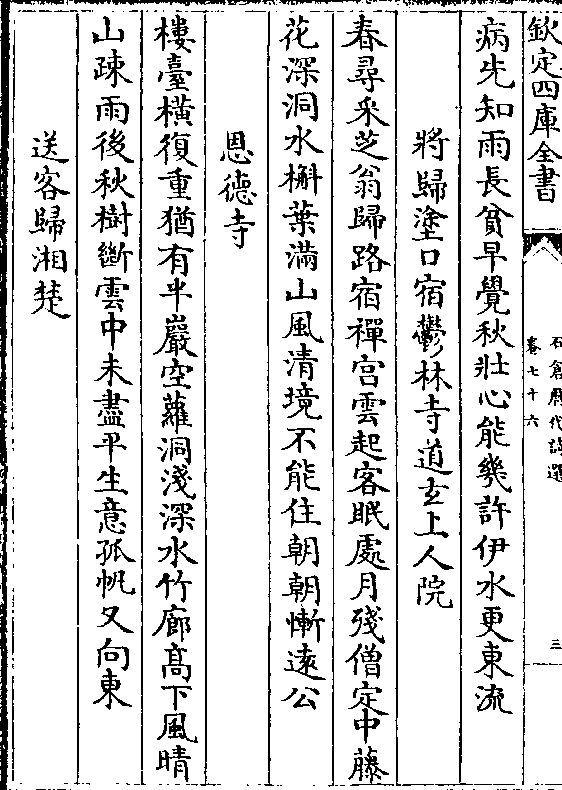 欽定四庫全書
石倉歷代詩選
卷七十六
三
病先知雨長貧早覺秋壯心能幾許伊水更東流
將歸塗口宿鬱林寺道玄上人院
春尋采芝翁歸路宿禪宫雲起客眠處月殘僧定中藤
花深洞水槲葉滿山風清境不能住朝朝慚遠公
恩德寺
樓臺横復重猶有半巖空蘿洞淺深水竹廊髙下風晴
山疎雨後秋樹斷雲中未盡平生意孤帆又向東
送客歸湘楚